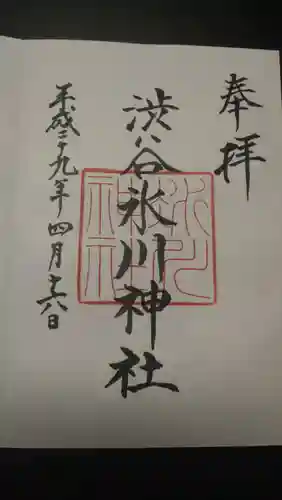 奉拝
渋谷氷川神社
平成二十九年四月十六日